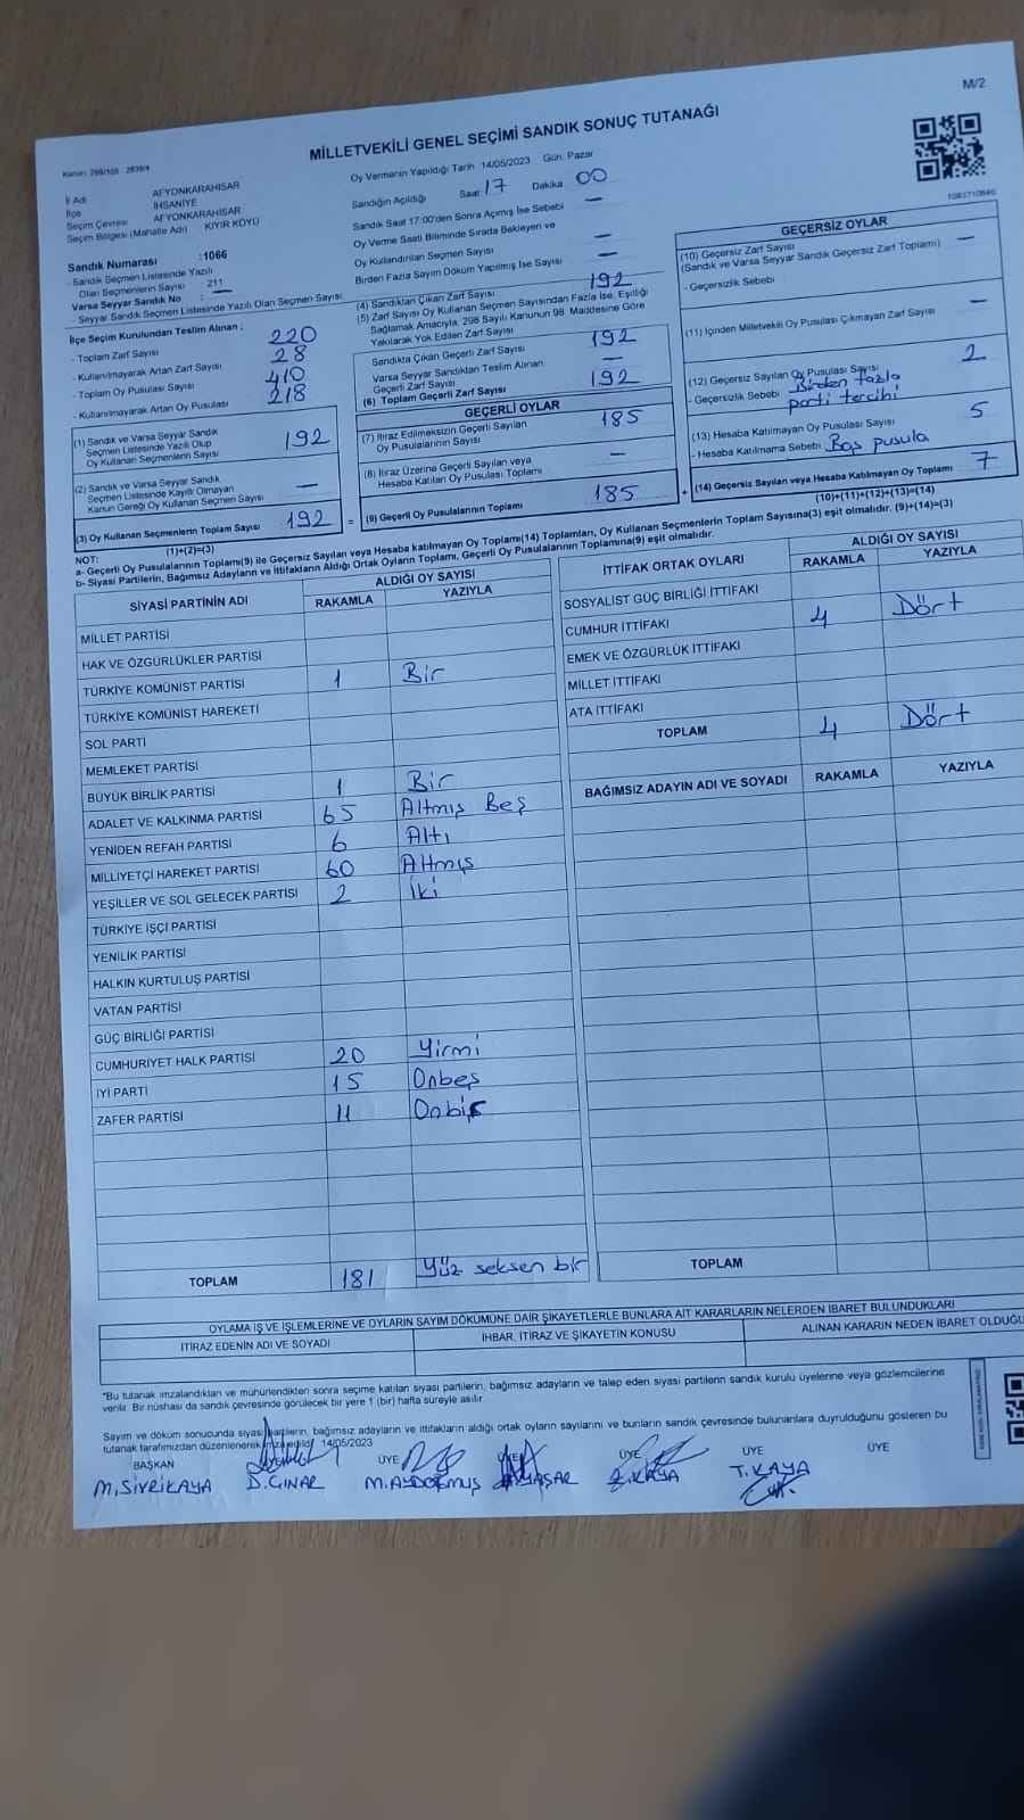 M/2
MİLLETVEKİLİ GENEL SEÇİMİ SANDIK SONUÇ TUTANAĞI
İl Adı AFYONKARAHİSAR
İlçe İHSANİYE
Seçim Çevresi AFYONKARAHİSAR
Seçim Bölgesi (Mahalle Adı) KIYIR KÖYÜ
Sandık Numarası :1066
- Sandık Seçmen Listesinde Yazılı
Olan Seçmenlerin Sayısı : 211
Varsa Seyyar Sandık No : —
- Seyyar Sandık Seçmen Listesinde Yazılı Olan Seçmen Sayısı:
İlçe Seçim Kurulundan Teslim Alınan ;
- Toplam Zarf Sayısı 220
- Kullanılmayarak Artan Zarf Sayısı 28
- Toplam Oy Pusulası Sayısı 410
- Kullanılmayarak Artan Oy Pusulası 218
(1) Sandık ve Varsa Seyyar Sandık
Seçmen Listesinde Yazılı Olup
Oy Kullanan Seçmenlerin Sayısı 192
(2) Sandık ve Varsa Seyyar Sandık
Seçmen Listesinde Kayıtlı Olmayan
Kanun Gereği Oy Kullanan Seçmen Sayısı —
(3) Oy Kullanan Seçmenlerin Toplam Sayısı 192
(1)+(2)=(3)
Oy Vermenin Yapıldığı Tarih 14/05/2023 Gün: Pazar
Sandığın Açıldığı Saat 17 Dakika 00
Sandık Saat 17:00'den Sonra Açımış İse Sebebi —
Oy Verme Saati Bitiminde Sırada Bekleyen ve
Oy Kullandırılan Seçmen Sayısı —
Birden Fazla Sayım Döküm Yapılmış İse Sayısı —
(4) Sandıktan Çıkan Zarf Sayısı 192
(5) Zarf Sayısı Oy Kullanan Seçmen Sayısından Fazla İse, Eşitliği
Sağlamak Amacıyla, 298 Sayılı Kanunun 98. Maddesine Göre
Yakılarak Yok Edilen Zarf Sayısı
Sandıkta Çıkan Geçerli Zarf Sayısı 192
Varsa Seyyar Sandıktan Teslim Alınan
Geçerli Zarf Sayısı —
(6) Toplam Geçerli Zarf Sayısı 192
GEÇERLİ OYLAR
(7) İtiraz Edilmeksizin Geçerli Sayılan
Oy Pusulalarının Sayısı 185
(8) İtiraz Üzerine Geçerli Sayılan veya
Hesaba Katılan Oy Pusulası Toplamı —
(9) Geçerli Oy Pusulalarının Toplamı 185
GEÇERSİZ OYLAR
(10) Geçersiz Zarf Sayısı
(Sandık ve Varsa Seyyar Sandık Geçersiz Zarf Toplamı) —
- Geçersizlik Sebebi
(11) İçinden Milletvekili Oy Pusulası Çıkmayan Zarf Sayısı —
(12) Geçersiz Sayılan Oy Pusulası Sayısı 2
- Geçersizlik Sebebi Birden fazla
parti tercihi
(13) Hesaba Katılmayan Oy Pusulası Sayısı 5
- Hesaba Katılmama Sebebi Boş pusula
(14) Geçersiz Sayılan veya Hesaba Katılmayan Oy Toplamı 7
(10)+(11)+(12)+(13)=(14)
NOT:
a- Geçerli Oy Pusulalarının Toplamı(9) ile Geçersiz Sayılan veya Hesaba katılmayan Oy Toplamı(14) Toplamları, Oy Kullanan Seçmenlerin Toplam Sayısına(3) eşit olmalıdır. (9)+(14)=(3)
b- Siyasi Partilerin, Bağımsız Adayların ve İttifakların Aldığı Ortak Oyların Toplamı, Geçerli Oy Pusulalarının Toplamına(9) eşit olmalıdır.
SİYASİ PARTİNİN ADI
ALDIĞI OY SAYISI
RAKAMLA YAZIYLA
MİLLET PARTİSİ
HAK VE ÖZGÜRLÜKLER PARTİSİ
TÜRKİYE KOMÜNİST PARTİSİ 1 Bir
TÜRKİYE KOMÜNİST HAREKETİ
SOL PARTİ
MEMLEKET PARTİSİ
BÜYÜK BİRLİK PARTİSİ 1 Bir
ADALET VE KALKINMA PARTİSİ 65 Altmış Beş
YENİDEN REFAH PARTİSİ 6 Altı
MİLLİYETÇİ HAREKET PARTİSİ 60 Altmış
YEŞİLLER VE SOL GELECEK PARTİSİ 2 İki
TÜRKİYE İŞÇİ PARTİSİ
YENİLİK PARTİSİ
HALKIN KURTULUŞ PARTİSİ
VATAN PARTİSİ
GÜÇ BİRLİĞİ PARTİSİ
CUMHURİYET HALK PARTİSİ 20 Yirmi
İYİ PARTİ 15 Onbeş
ZAFER PARTİSİ 11 Onbir
TOPLAM 181 Yüz seksen bir
İTTİFAK ORTAK OYLARI
ALDIĞI OY SAYISI
RAKAMLA YAZIYLA
SOSYALİST GÜÇ BİRLİĞİ İTTİFAKI
CUMHUR İTTİFAKI 4 Dört
EMEK VE ÖZGÜRLÜK İTTİFAKI
MİLLET İTTİFAKI
ATA İTTİFAKI
TOPLAM 4 Dört
BAĞIMSIZ ADAYIN ADI VE SOYADI RAKAMLA YAZIYLA
TOPLAM
OYLAMA İŞ VE İŞLEMLERİNE VE OYLARIN SAYIM DÖKÜMÜNE DAİR ŞİKAYETLERLE BUNLARA AİT KARARLARIN NELERDEN İBARET BULUNDUKLARI
İTİRAZ EDENİN ADI VE SOYADI İHBAR, İTİRAZ VE ŞİKAYETİN KONUSU ALINAN KARARIN NEDEN İBARET OLDUĞU
*Bu tutanak imzalandıktan ve mühürlendikten sonra seçime katılan siyasi partilerin, bağımsız adayların ve talep eden siyasi partilerin sandık kurulu üyelerine veya gözlemcilerine
verilir. Bir nüshası da sandık çevresinde görülecek bir yere 1 (bir) hafta süreyle asılır.
Sayım ve döküm sonucunda siyasi partilerin, bağımsız adayların ve ittifakların aldığı ortak oyların sayılarını ve bunların sandık çevresinde bulunanlara duyrulduğunu gösteren bu
tutanak tarafımızdan düzenlenerek imza edildi. 14/05/2023
BAŞKAN ÜYE ÜYE ÜYE ÜYE ÜYE
M.SİVRİKAYA D.ÇINAR M.AYDOĞMUŞ YAŞAR Z.KAYA T.KAYA